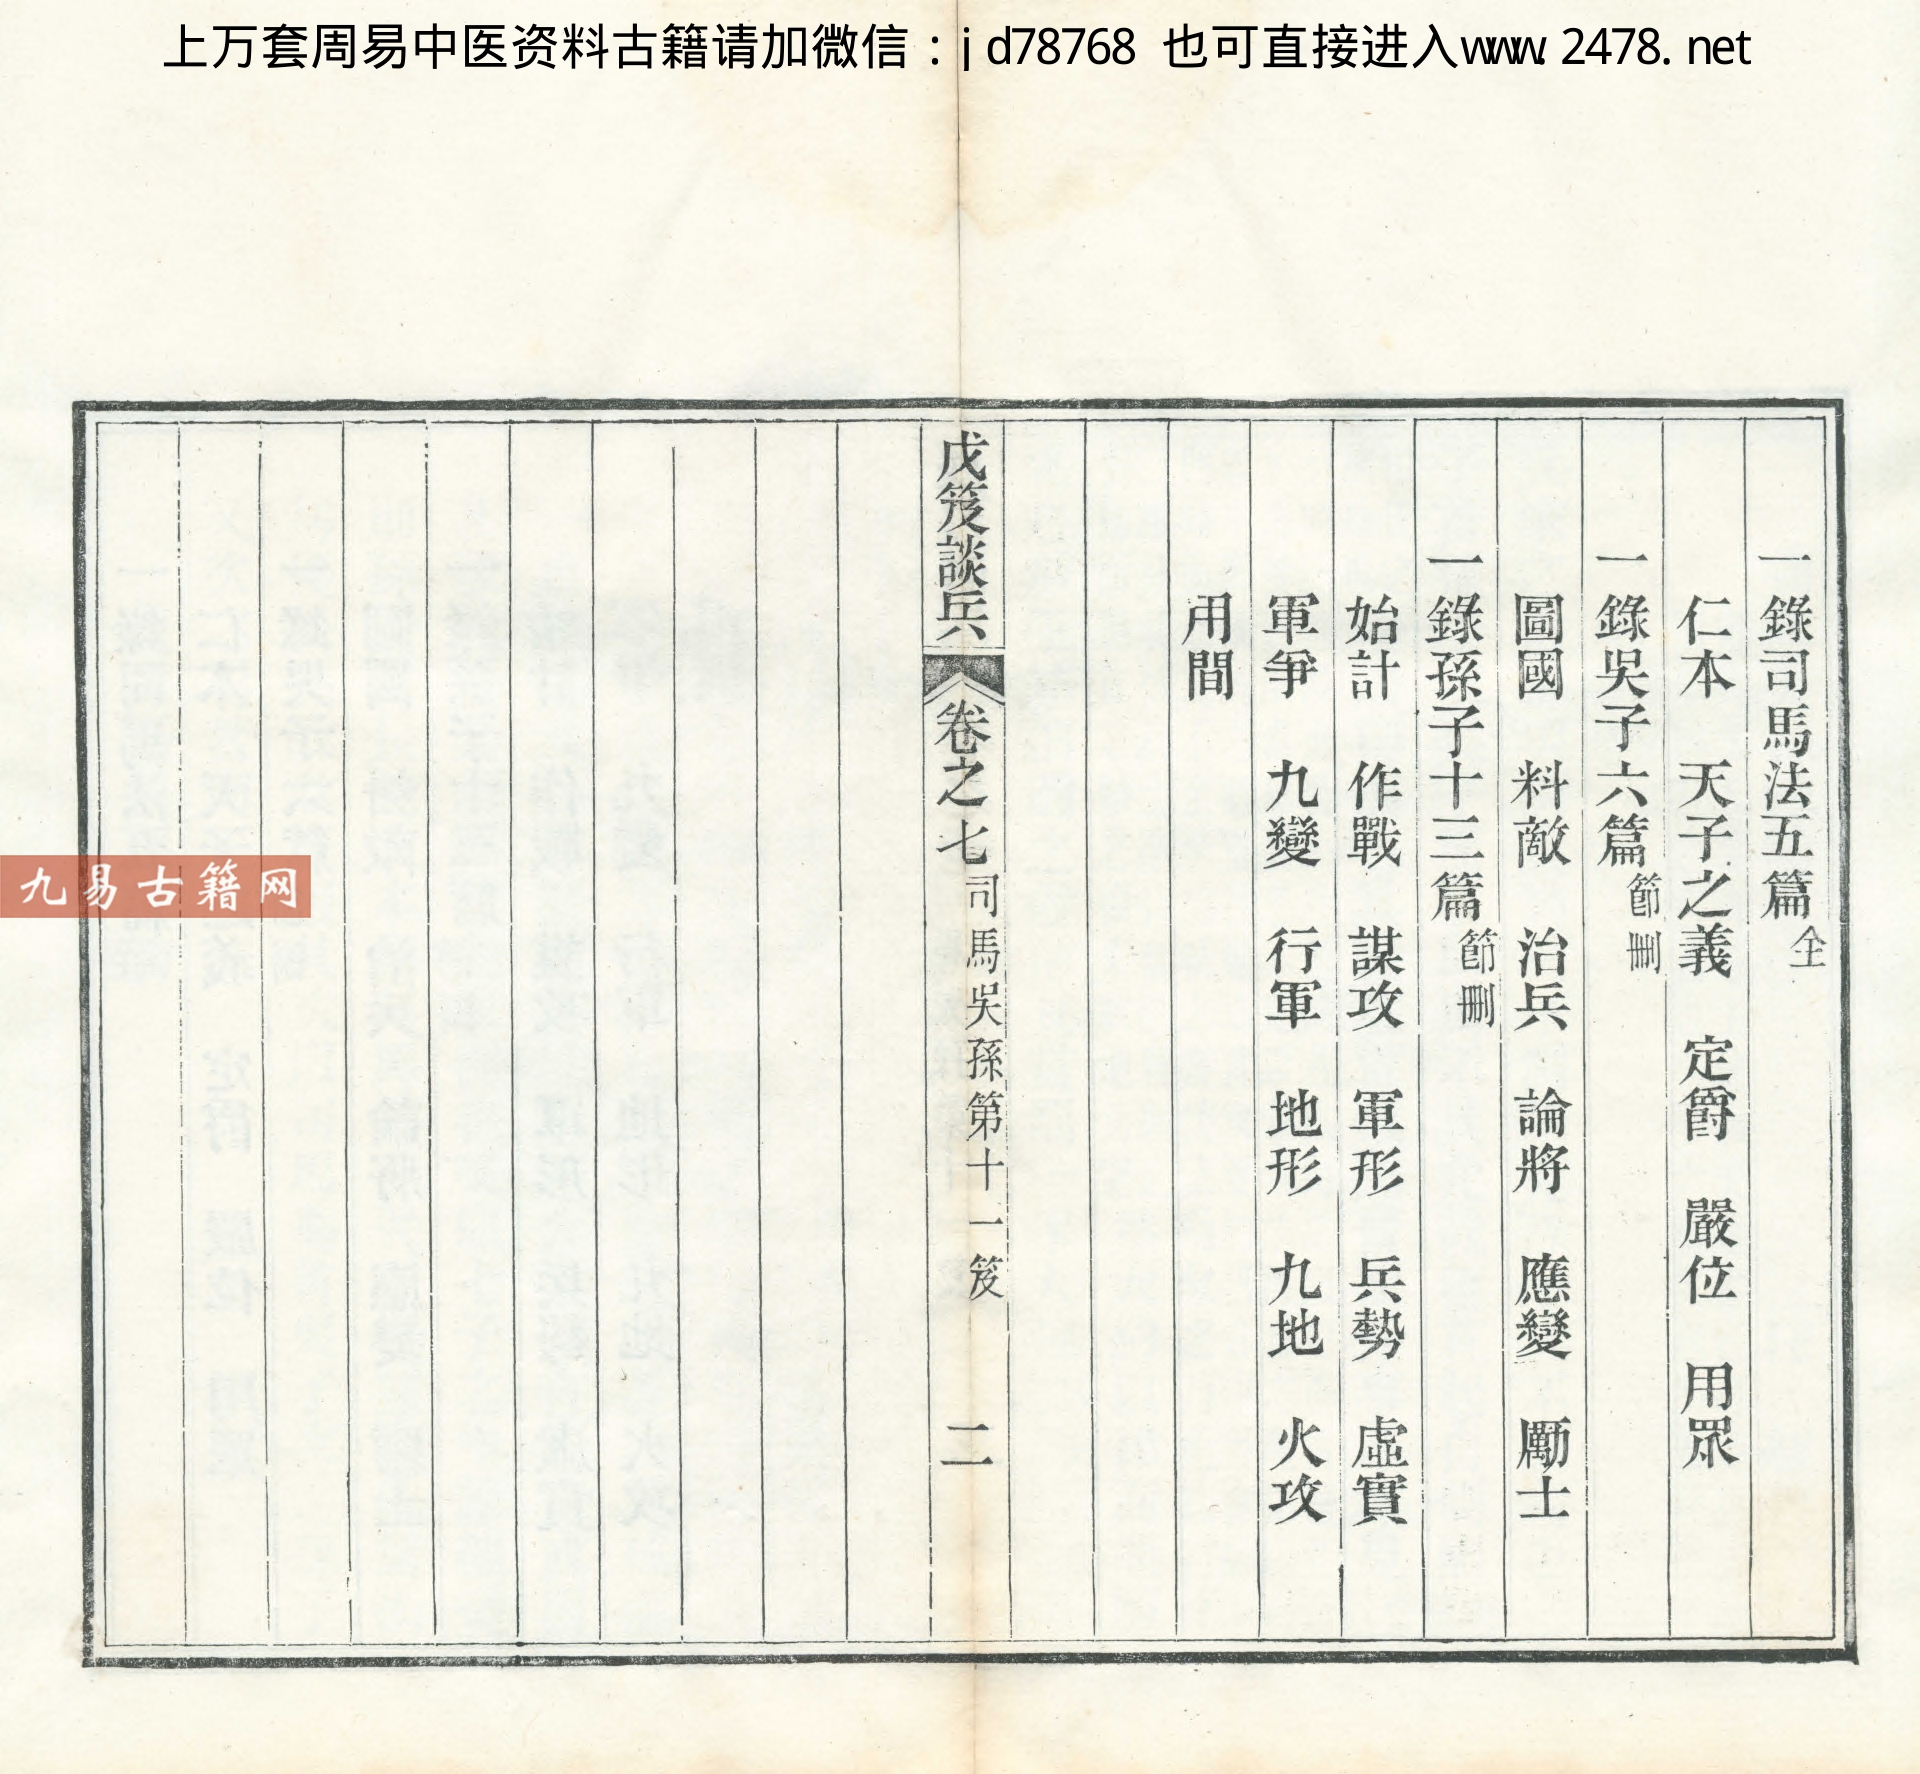 上万套周易中医资料古籍请加微信：jd78768 也可直接进入www.2478.net
一錄司馬法五篇全
仁本 天子之義 定爵 嚴位 用眾
一錄吳子六篇節刪
圖國 料敵 治兵 論將 應變 勵士
一錄孫子十三篇節刪
始計 作戰 謀攻 軍形 兵勢 虛實
軍爭 九變 行軍 地形 九地 火攻
用間
戊笈談兵 卷之七 司馬吳孫第十一笈 二
九易古籍网